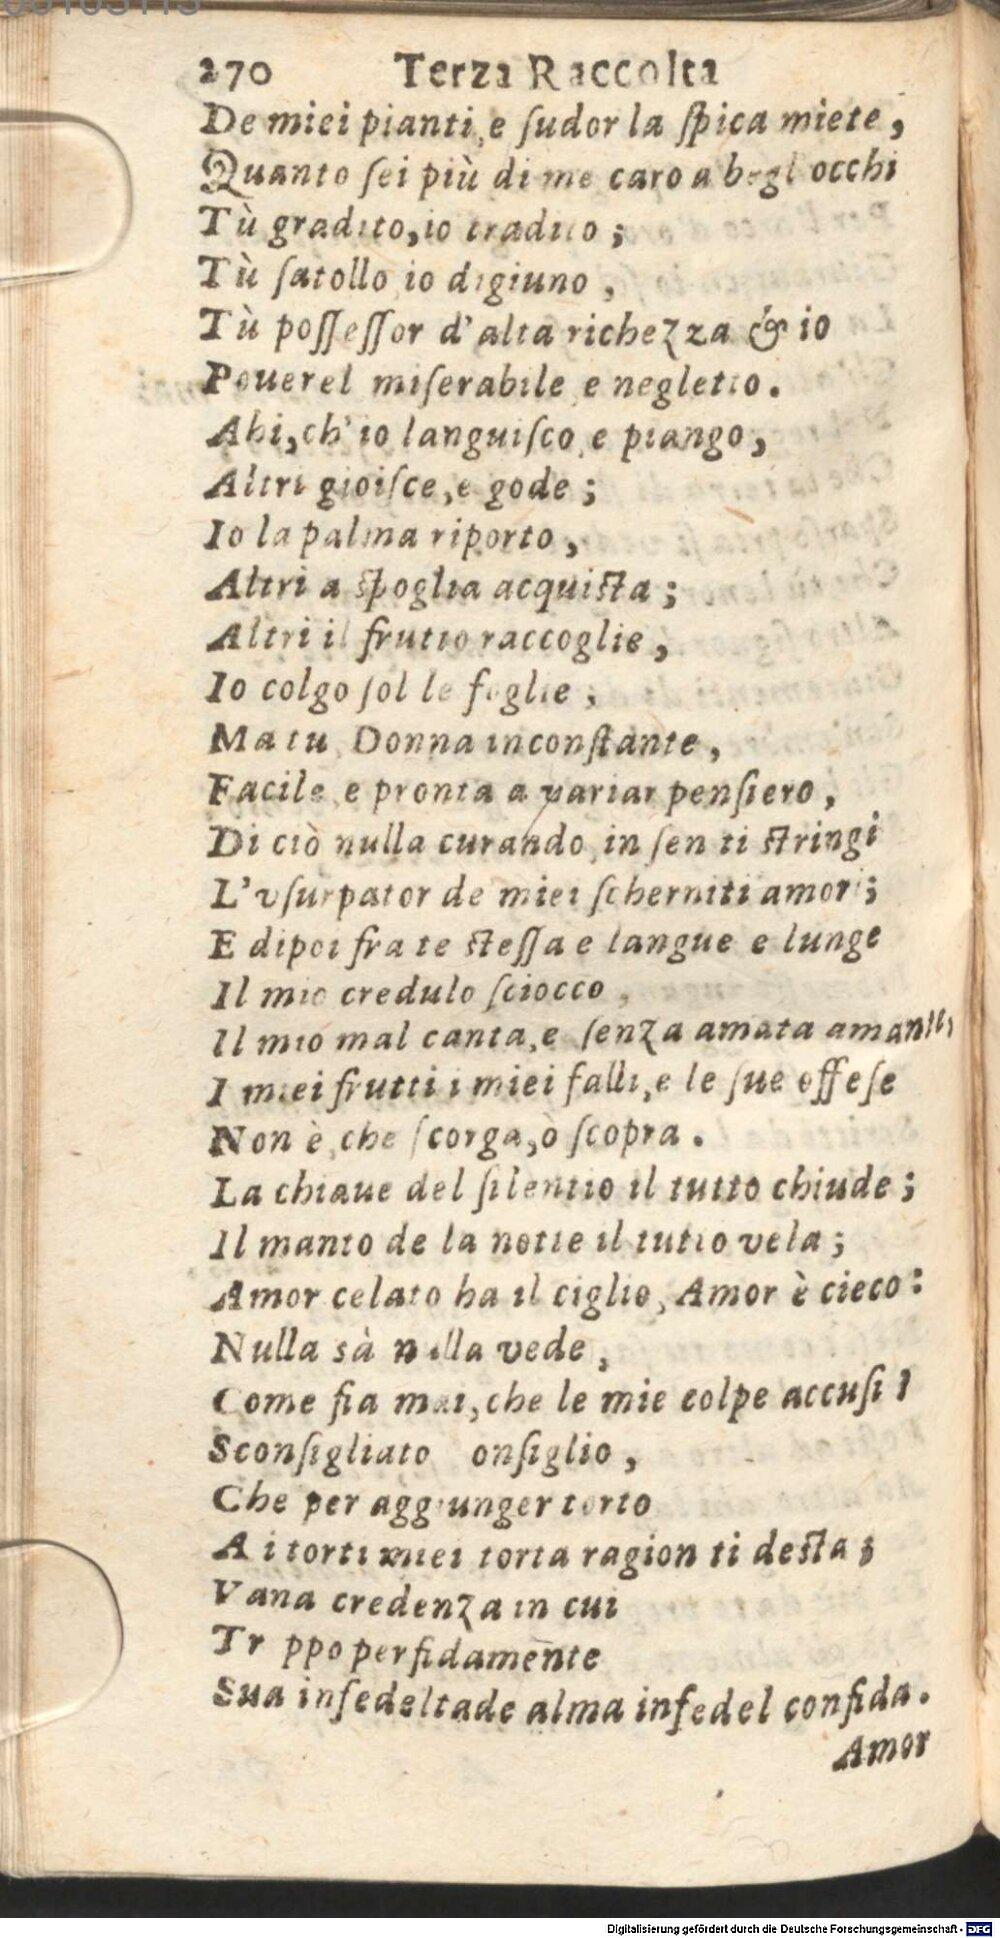 270 Terza Raccolta
De miei pianti, e ſudor la ſpica miete,
Quanto ſei più di me caro a begl occhi
Tù gradito, io tradito;
Tù ſatollo io digiuno,
Tù poſſeſſor d'alta richezza & io
Pouerel miſerabile, e negletto.
Ahi, ch'io languiſco, e piango,
Altri gioiſce, e gode;
Io la palma riporto,
Altri a ſpoglia acquiſta;
Altri il frutto raccoglie,
Io colgo ſol le foglie,
Ma tu, Donna inconſtante,
Facile, e pronta a variar penſiero,
Di ciò nulla curando, in ſen ti ſtringi
L'vſurpator de miei ſcherniti amori;
E dipoi fra te ſteſſa e langue e lunge
Il mio credulo ſciocco,
Il mio mal canta, e ſenza amata amante,
I miei frutti i miei falli, e le ſue offeſe
Non è, che ſcorga, ò ſcopra.
La chiaue del ſilentio il tutto chiude;
Il manto de la notte il tutto vela;
Amor celato ha il ciglio, Amor è cieco:
Nulla sà nulla vede,
Come fia mai, che le mie colpe accuſi
Sconſigliato onſiglio,
Che per aggiunger torto
A i torti miei torta ragion ti deſta;
Vana credenza in cui
Tr ppo perfidamente
Sua inſedeltade alma infedel confida.
Amor
Digitalisierung gefördert durch die Deutsche Forschungsgemeinschaft - DFG